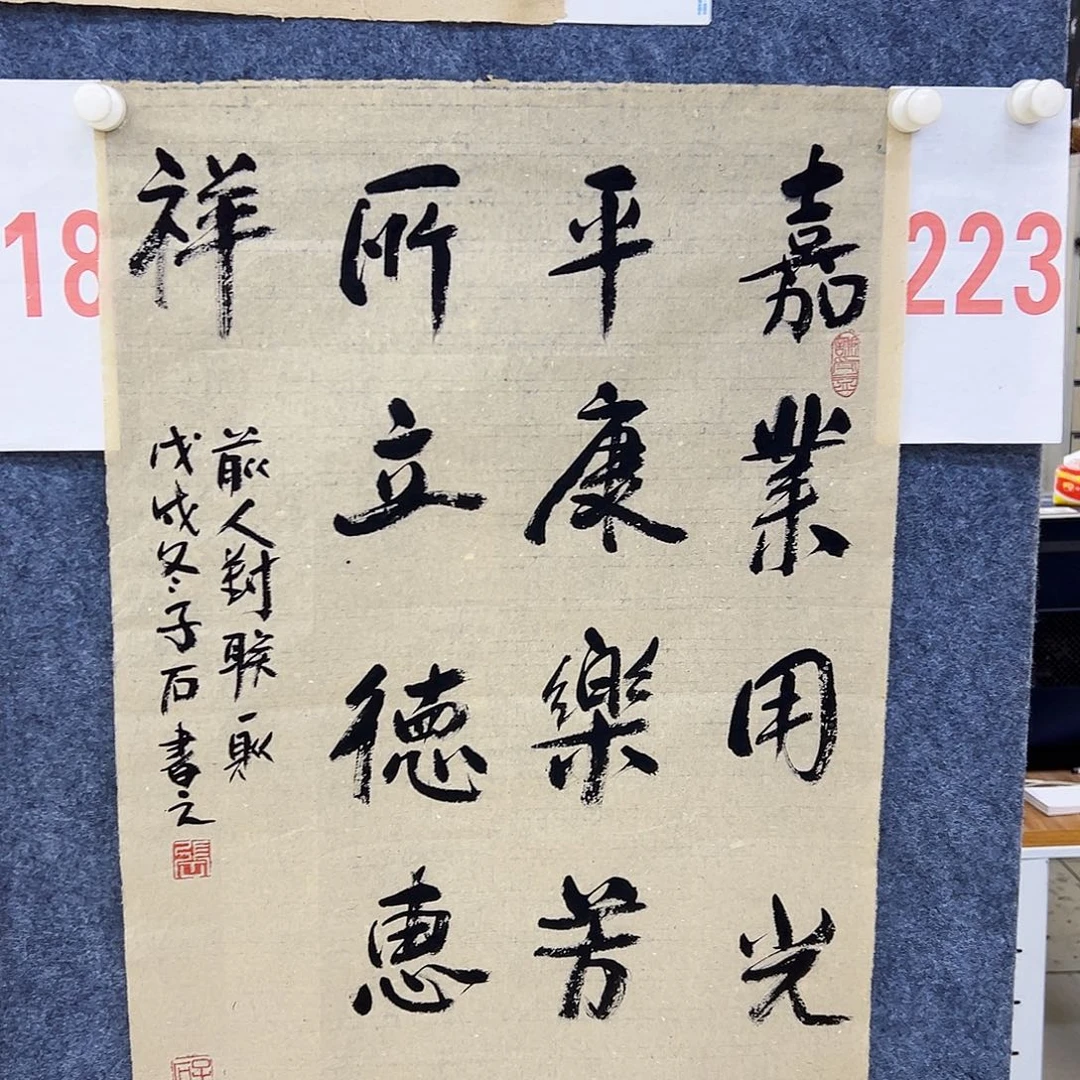 嘉業用光
平康樂芳
所立德惠
祥
前人對聯一則
戊戌冬子石書之
223
18